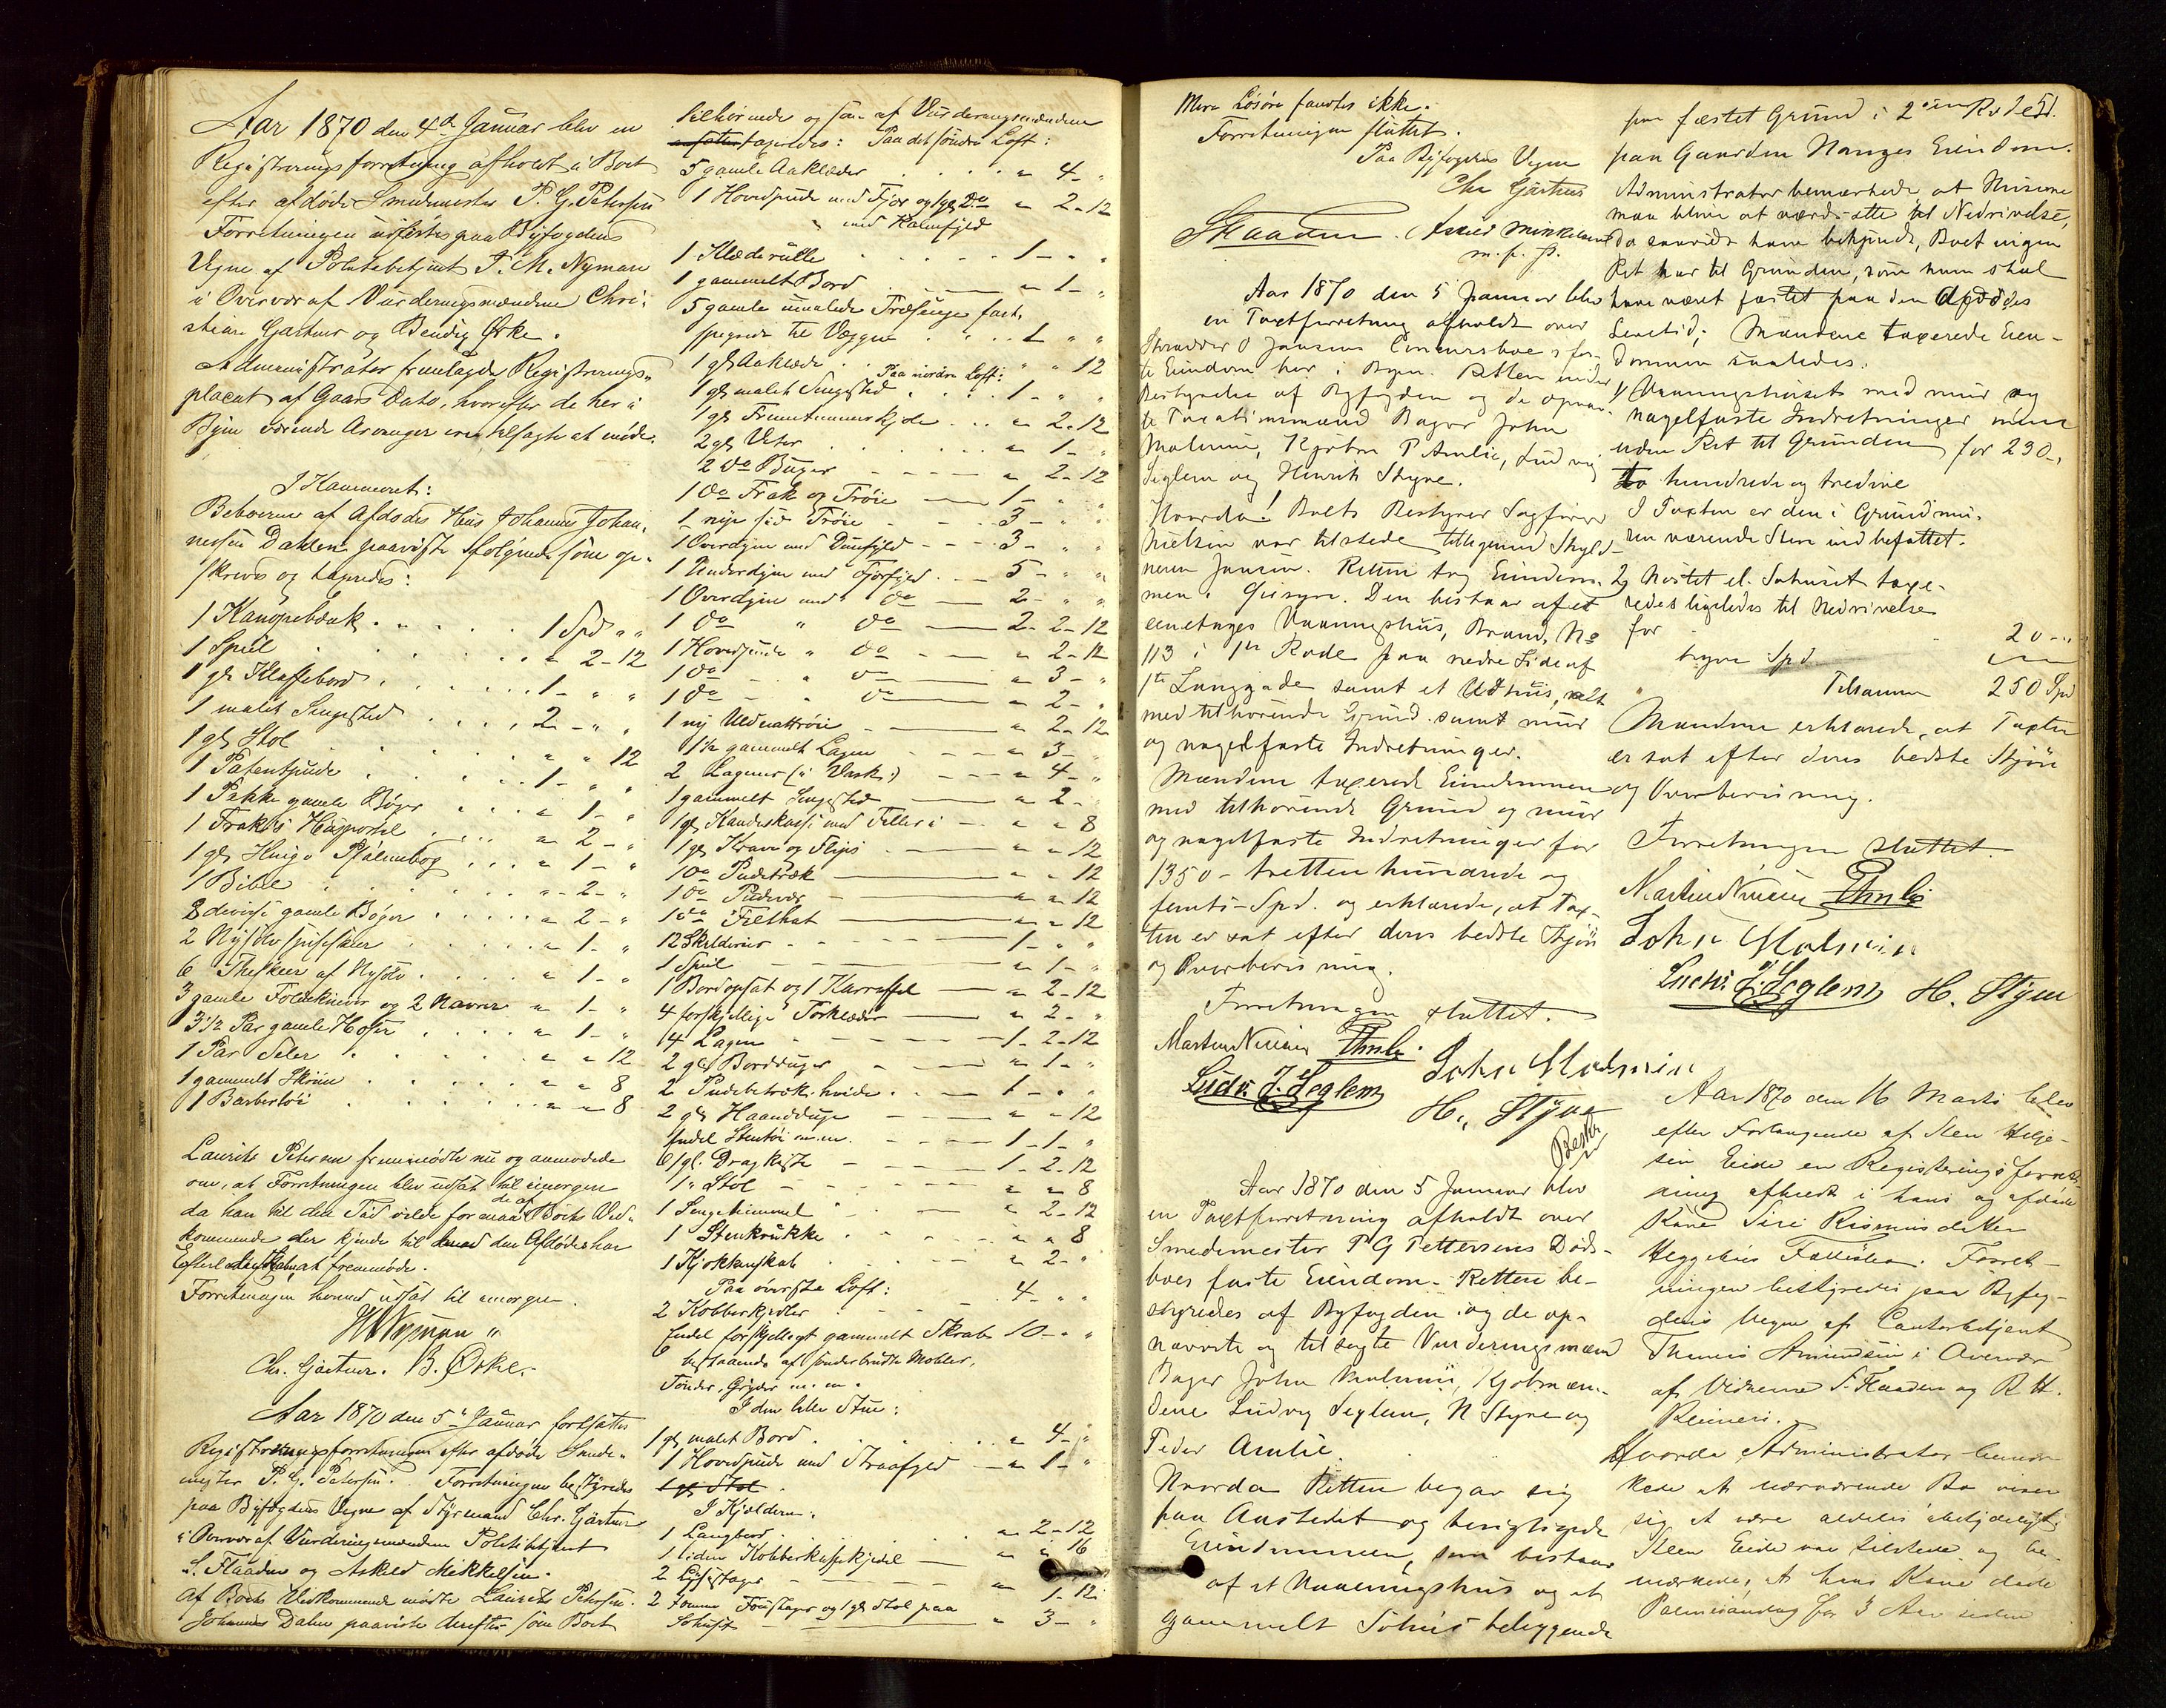 Aar 1870 den 4de Januar blev en
Registreringsforretning afholdt i Boet
efter afdøde Smedmester P. G. Petersen
Forretningen udførtes paa Byfogdens
Vegne af Politibetjent T. M. Nyman
i Overvær af Vurderingsmændene Chri-
stian Gartner og Bendig Ørke.
Administrator fremlagde Registrerings-
placat af Gaars Dato, hvorefter de her i
Byen værende Arvinger ere tilsagte at møde.
I Kammeret:
Beboeren af Afdødes Hus Johannes Johan-
nessen Dahlen paaviste Følgende som op-
skreves og taxeredes:
1 Kanapebænk . . . 1 Spd " "
1 Speil . . . " 2-12
1 gl Klaffebord . . . 1- " "
1 malet Sengested . . . 2- " "
1 gl Stol . . . " " 12
1 Patentpude . . . 1- " "
1 Pakke gamle Bøger . . . " 1- "
1 Huspostil . . . " 2- "
1 gl Psalmebog . . . " 1- "
1 Bibel . . . " 2- "
8 diverse gamle Bøger . . . " 2- "
2 Nysølv spiseskeer . . . " 1- "
6 Theskeer af Nysølv . . . " 1- "
3 gamle Foldeknive og 2 Navrer " 1- "
3 1/2 Par gamle Hoser . . . " 1- "
1 Par Seler . . . " " 12
1 gammelt Skrin . . . " " 8
1 Barbertøi . . . " " 8
Laurits Petersen fremmødte nu og anmodede
om, at Forretningen blev udsat til imorgen
da han til den Tid vilde formaa de af Boets Ved-
kommende der kjende til den Afdødes
at fremmøde.
Forretningen herved udsat til imorgen.
Nyman
Chr. Gartner. B. Ørke.
Aar 1870 den 5te Januar fortsattes
Registreringsforretningen efter afdøde Smede-
mester P. G. Petersen. Forretningen bestyredes
paa Byfogdens Vegne af Styrmand Chr. Gartner
i Overvær af Vurderingsmændene Politibetjent
S. Flaaden og Askild Mikkelsen.
Af Boets Vedkommende mødte Laurits Petersen.
Johannes Dalen paaviste derefter som Boet
tilhørende og som af Vurderingsmændene
taxeredes: Paa det søndre Loft:
5 gamle Aaklæder . . . " 4- "
1 Hovedpude med Fjær og 1 gl Do " 2-12
med Halmfyld
1 Klæderulle . . . 1- " "
1 gammelt Bord . . . " 1- "
5 gamle umalede Træsenge fast-
spigrede til Væggen . . . 1 " "
1 gl Aaklæde . . . " " 12
Paa nordre Loft:
1 gl malet Sengested . . . 1- " "
1 gl Fruentimmerkjole . . . " 2-12
2 gl Veste . . . " 1- "
2 do Buxer . . . " 2-12
1 do Frak og Trøie . . . 1- " "
1 nye Trøie . . . 3- " "
1 Overdyne med Duunfyld . . . 3- " "
1 Underdyne med Fjærfyld . . . 5- " "
1 Overdyne med do . . . 2- " "
1 do " do . . . 2-2-12
1 Hovedpude " do . . . " 2-12
1 do " do . . . " 3- "
1 do " do . . . " 2- "
1 ny Uldnattrøie . . . " 2-12
1 1/2 gammelt Lagen . . . " 3- "
2 Lagener (i Vask:) . . . " 4- "
1 gammelt Sengested . . . " 2- "
1 gl . . . " " 8
1 gl Krave og Flips . . . " " 12
1 do Pudetræk . . . " " 12
1 do Pudevar . . . " " 12
1 do Filthat . . . " " 12
12 Skilderier . . . 1- " "
1 Speil . . . " 1- "
1 Bordopsat og 1 Karraffel . . . " 2-12
4 forskjellige Forklæder . . . " 2- "
4 Lagen . . . 1-2-12
2 gl Borddúger . . . " 1- "
2 Pudebetræk hvide . . . 1- " "
2 gl Haanddúge . . . " " 12
Endel Stentøi m.m. . . . 1-1- "
1 gl. Dragkiste . . . 1-2-12
1 " Stol . . . " " 8
1 Sengehimmel . . . " 2-12
1 Stenkrukke . . . " " 8
1 Kjøkkenskab . . . " 2- "
Paa øverste Loft:
2 Kobberkjedler . . . 4- " "
Endel forskjelligt gammelt Skrab 10- " "
bestaaende af sønderbrudte Møbler,
Tønder, Gryder m.m.
I den lille Stue:
1 gl malet Bord . . . " 4- "
1 Hovedpude med Straafyld . . . " 1- "
1 gl Stol
I Kjelderen:
1 Langbord . . . " 2-12
1 liden Kobberkaffekjedel . . . " " 16
2 Lysestager . . . " 1-12
2 tomme Foustager og 1 gl Stol paa
Søhuset . . . " 3- "
Mere Løsøre fandtes ikke.
Forretningen sluttet.
Paa Byfogdens Vegne
Chr Gartner
SFlaaden. Askild Mikkelsen
m. p. P.
Aar 1870 den 5 Januar blev
en Taxtforretning afholdt over
Skrædder O Jansens Concursboes fa-
ste Eiendom her i Byen. Retten under
Bestyrelse af Byfogden og de opnævn-
te Taxationsmænd Bager John
Malmin, Kjøbm P Amlie, Ludvig
Seglem og Henrik Styve.
Hvorda! Boets Bestyrer Sagfører
Nielsen var tilstede tilligemed Skyld-
neren Jansen. Retten tog Eiendom-
men i Øiesyn. Den bestaar af et
eenetages Vaaningshus, Brand. No
113 i 1ste Rode paa nedre Side af
1ste Langgade samt et Udhus, alt
med tilhørende Grund samt muur
og nagelfaste Indretninger.
Mændene taxerede Eiendommen
med tilhørende Grund og muur
og nagelfaste Indretninger for
1350 - tretten hundrede og
femti - Spd. og erklærede, at Tax-
ten er sat efter deres bedste Skjøn
og Overbevisning.
Forretningen sluttet.
Martin Nielsen PAmlie John Malmin
Ludv. J. Seglem H. Styve
Aar 1870 den 5 Januar blev
en Taxtforretning afholdt over
Smedemester P G Pettersens Døds-
boes faste Eiendom. Retten be-
styredes af Byfogden og de op-
nævnte og tilsagte Vurderingsmænd
Bager John Malmin, Kjøbmæn-
dene Ludvig Seglem, H Styve og
Peder Amlie.
Hvorda Retten begav sig
paa Aastedet og besigtigede
Eiendommen, som bestaar
af et Vaaningshus og et
gammelt Søhus beliggende
51.
paa fæstet Grund i 2den Rode
paa Gaarden Hauges Eiendom.
Administrator bemærkede at Husene
maa blive at værdsætte til Nedrivelse,
da saavidt have bekjendt, Boet ingen
Ret har til Grunden, som kun skal
have været fæstet paa den Afdødes
Levetid; Mændene taxerede Eien-
dommen saaledes:
1) Vaaningshuset med muur og
nagelfaste Indretninger men
uden Ret til Grunden for 230-,
to hundrede og tredive
I Taxten er den i Grundmu-
ren værende Steen indbefattet.
2) Nøstet el. Søhuset taxe-
redes ligeledes til Nedrivelse
for . . . 20-"
tyve Spd
Tilsammen 250 Spd
Mændene erklærede, at Taxten
er sat efter deres bedste Skjøn
og Overbevisning.
Forretningen sluttet.
Martin Nielsen PAmlie
John Malmin
Ludv. J. Seglem H. Styve
Aar 1870 den 16 Marts blev
efter Forlangende af Sten Helje-
sen Eide en Registreringsforret-
ning afholdt i hans og afdøde
Kone Siri Rasmusdatter
Forret-
ningen bestyredes paa Byfog-
dens Vegne af Contorbetjent
Amundsen i Overvær
af Vidnerne S. Flaaden og R H.
Reimers.
Hvorda Administrator bemær-
kede at nærværende Bo viser
sig at være aldeles ubetydeligt.
Steen Eide var tilstede og be-
mærkede, at hans Kone døde
Palmesøndag for 3 Aar siden